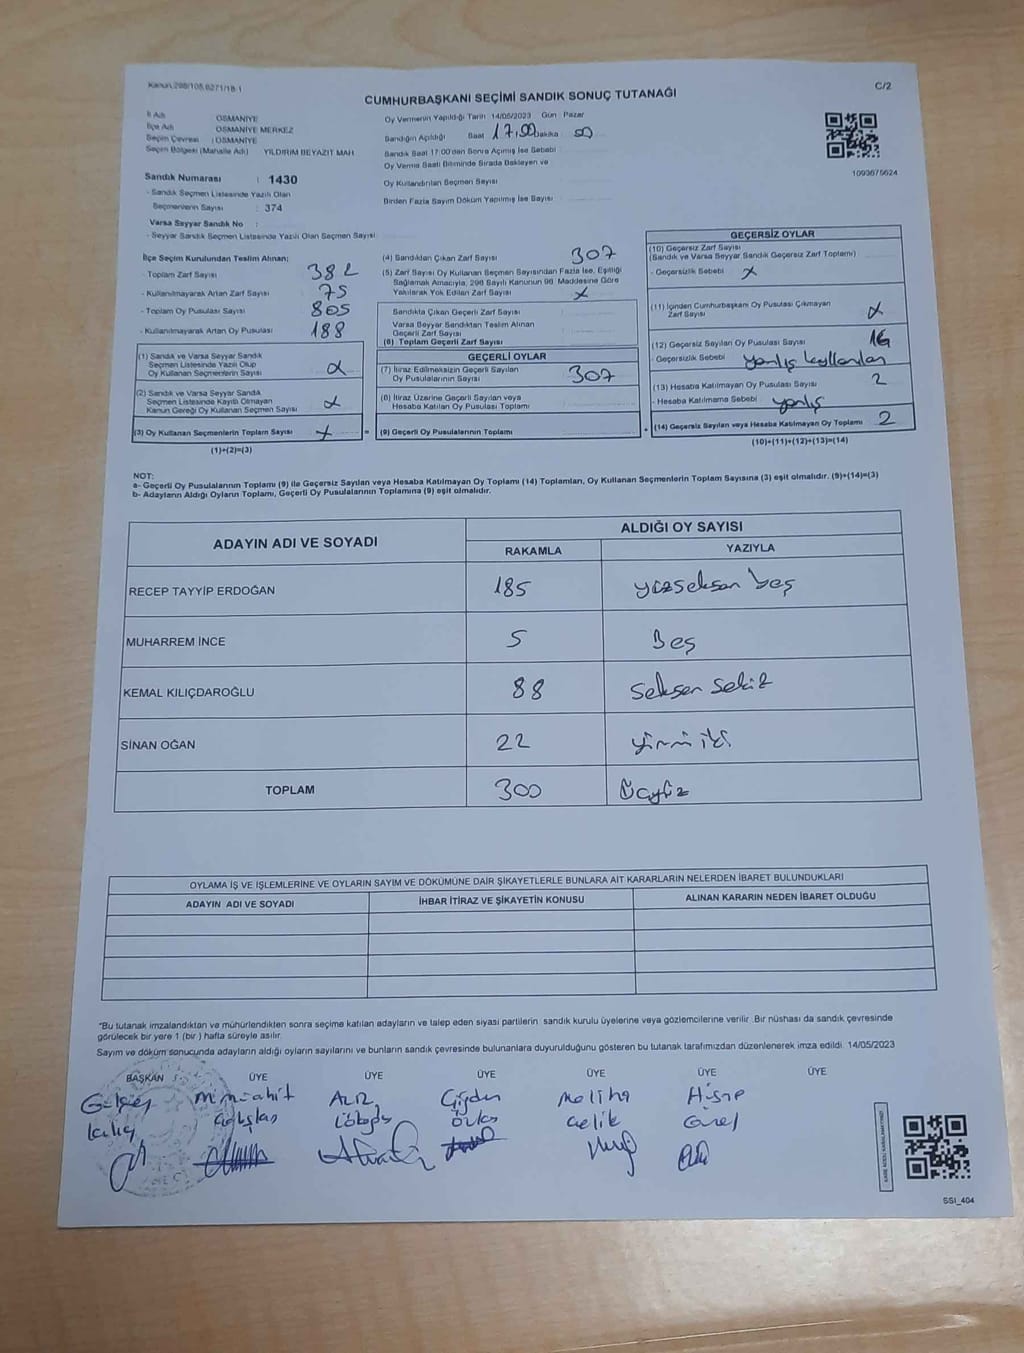 Kanun:298/105,6271/18-1
C/2
CUMHURBAŞKANI SEÇİMİ SANDIK SONUÇ TUTANAĞI
İl Adı : OSMANİYE
İlçe Adı : OSMANİYE MERKEZ
Seçim Çevresi : OSMANİYE
Seçim Bölgesi (Mahalle Adı) : YILDIRIM BEYAZIT MAH
Sandık Numarası : 1430
- Sandık Seçmen Listesinde Yazılı Olan
Seçmenlerin Sayısı : 374
Varsa Seyyar Sandık No :
- Seyyar Sandık Seçmen Listesinde Yazılı Olan Seçmen Sayısı:
Oy Vermenin Yapıldığı Tarih 14/05/2023 Gün Pazar
Sandığın Açıldığı Saat 17,00 Dakika 00
Sandık Saat 17:00'den Sonra Açılmış İse Sebebi
Oy Verme Saati Bitiminde Sırada Bekleyen ve
Oy Kullandırılan Seçmen Sayısı
Birden Fazla Sayım Döküm Yapılmış İse Sayısı
1093675624
İlçe Seçim Kurulundan Teslim Alınan:
- Toplam Zarf Sayısı 382
- Kullanılmayarak Artan Zarf Sayısı 75
- Toplam Oy Pusulası Sayısı 805
- Kullanılmayarak Artan Oy Pusulası 188
(1) Sandık ve Varsa Seyyar Sandık
Seçmen Listesinde Yazılı Olup
Oy Kullanan Seçmenlerin Sayısı x
(2) Sandık ve Varsa Seyyar Sandık
Seçmen Listesinde Kayıtlı Olmayan
Kanun Gereği Oy Kullanan Seçmen Sayısı x
(3) Oy Kullanan Seçmenlerin Toplam Sayısı x =
(1)+(2)=(3)
(4) Sandıktan Çıkan Zarf Sayısı 307
(5) Zarf Sayısı Oy Kullanan Seçmen Sayısından Fazla İse, Eşitliği
Sağlamak Amacıyla, 298 Sayılı Kanunun 98. Maddesine Göre
Yakılarak Yok Edilen Zarf Sayısı x
Sandıkta Çıkan Geçerli Zarf Sayısı
Varsa Seyyar Sandıktan Teslim Alınan
Geçerli Zarf Sayısı
(6) Toplam Geçerli Zarf Sayısı
GEÇERLİ OYLAR
(7) İtiraz Edilmeksizin Geçerli Sayılan
Oy Pusulalarının Sayısı 307
(8) İtiraz Üzerine Geçerli Sayılan veya
Hesaba Katılan Oy Pusulası Toplamı
(9) Geçerli Oy Pusulalarının Toplamı +
GEÇERSİZ OYLAR
(10) Geçersiz Zarf Sayısı
(Sandık ve Varsa Seyyar Sandık Geçersiz Zarf Toplamı)
- Geçersizlik Sebebi x
(11) İçinden Cumhurbaşkanı Oy Pusulası Çıkmayan
Zarf Sayısı x
(12) Geçersiz Sayılan Oy Pusulası Sayısı 16
- Geçersizlik Sebebi yanlış kullanılan
(13) Hesaba Katılmayan Oy Pusulası Sayısı 2
- Hesaba Katılmama Sebebi yanlış
(14) Geçersiz Sayılan veya Hesaba Katılmayan Oy Toplamı 2
(10)+(11)+(12)+(13)=(14)
NOT:
a- Geçerli Oy Pusulalarının Toplamı (9) ile Geçersiz Sayılan veya Hesaba Katılmayan Oy Toplamı (14) Toplamları, Oy Kullanan Seçmenlerin Toplam Sayısına (3) eşit olmalıdır. (9)+(14)=(3)
b- Adayların Aldığı Oyların Toplamı, Geçerli Oy Pusulalarının Toplamına (9) eşit olmalıdır.
ADAYIN ADI VE SOYADI
ALDIĞI OY SAYISI
RAKAMLA YAZIYLA
RECEP TAYYİP ERDOĞAN 185 yüzseksen beş
MUHARREM İNCE 5 Beş
KEMAL KILIÇDAROĞLU 88 Seksen sekiz
SİNAN OĞAN 22 yirmi iki
TOPLAM 300 Üçyüz
OYLAMA İŞ VE İŞLEMLERİNE VE OYLARIN SAYIM VE DÖKÜMÜNE DAİR ŞİKAYETLERLE BUNLARA AİT KARARLARIN NELERDEN İBARET BULUNDUKLARI
ADAYIN ADI VE SOYADI İHBAR İTİRAZ VE ŞİKAYETİN KONUSU ALINAN KARARIN NEDEN İBARET OLDUĞU
*Bu tutanak imzalandıktan ve mühürlendikten sonra seçime katılan adayların ve talep eden siyasi partilerin sandık kurulu üyelerine veya gözlemcilerine verilir. Bir nüshası da sandık çevresinde
görülecek bir yere 1 (bir) hafta süreyle asılır.
Sayım ve döküm sonucunda adayların aldığı oyların sayılarını ve bunların sandık çevresinde bulunanlara duyurulduğunu gösteren bu tutanak tarafımızdan düzenlenerek imza edildi. 14/05/2023
BAŞKAN ÜYE ÜYE ÜYE ÜYE ÜYE ÜYE
Gülçey Aziz Çiğdem Meliha
Kılıç Çelik Gürel
SSI_404